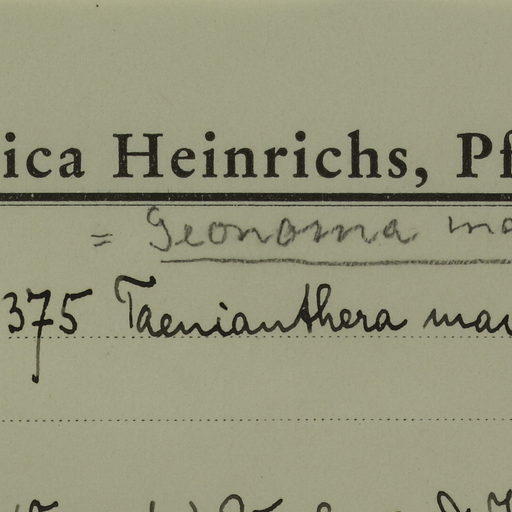 ica Heinrichs, Pf
= Geonoma ma
375 Taenianthera mac